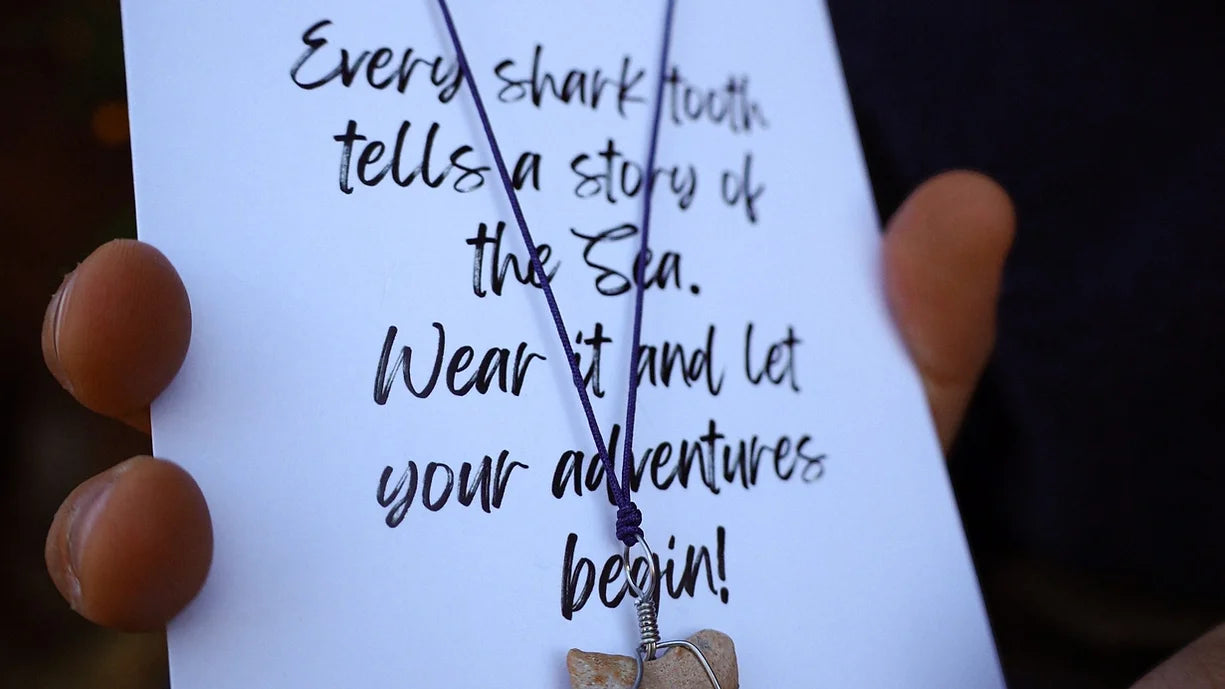 Every shark tooth
tells a story of
the Sea.
Wear it and let
your adventures
begin!